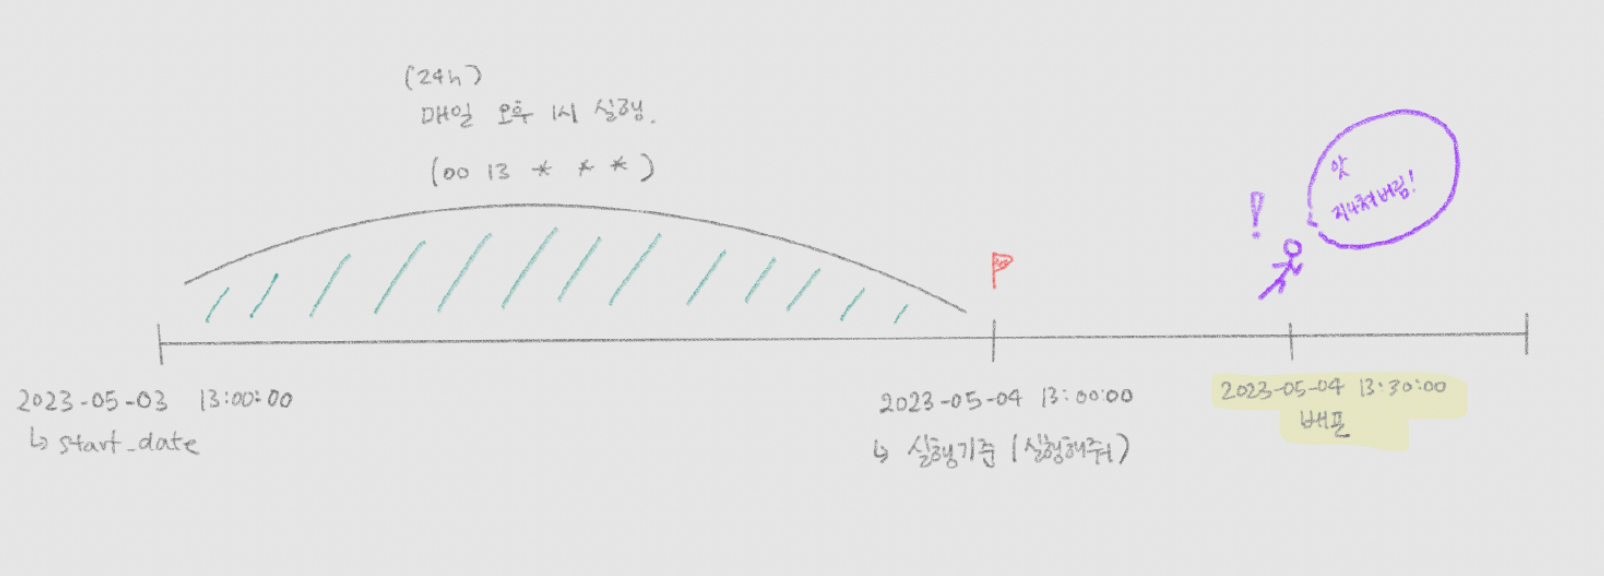 (24h)
매일 오후 1시 실행.
(00 13 * * *)
앗
지나쳐버림!
!
2023-05-03 13:00:00
↳ start_date
2023-05-04 13:00:00
↳ 실행기준 (실행해줘)
2023-05-04 13:30:00
배포